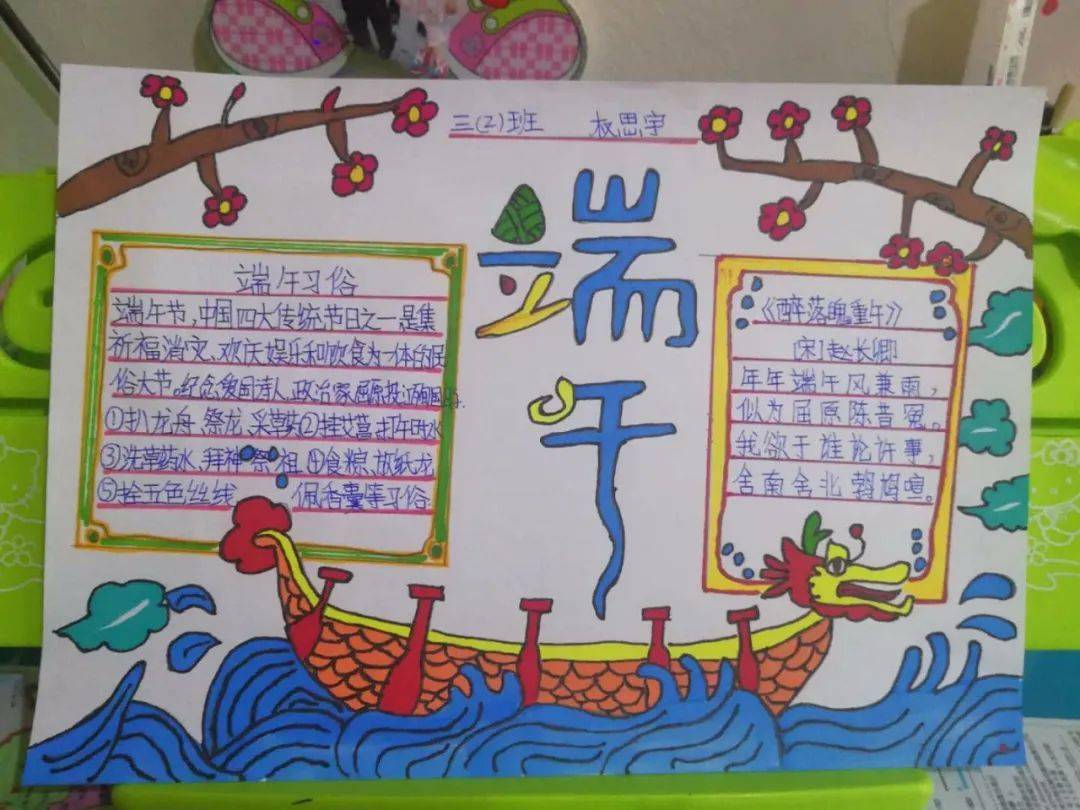 三(2)班 权思宇
端午
端午习俗
端午节,中国四大传统节日之一是集
祈福消灾、欢庆娱乐和饮食为一体的民
俗大节。纪念爱国诗人、政治家屈原投汨
①扒龙舟、祭龙、采草药②挂艾蒿、打午时水
③洗草药水、拜神祭祖④食粽、放纸龙
⑤拴五色丝线 佩香囊等习俗.
《醉落魄重午》
[宋]赵长卿
年年端午风兼雨,
似为屈原陈昔冤。
我欲于谁论许事,
舍南舍北鹁鸠喧。